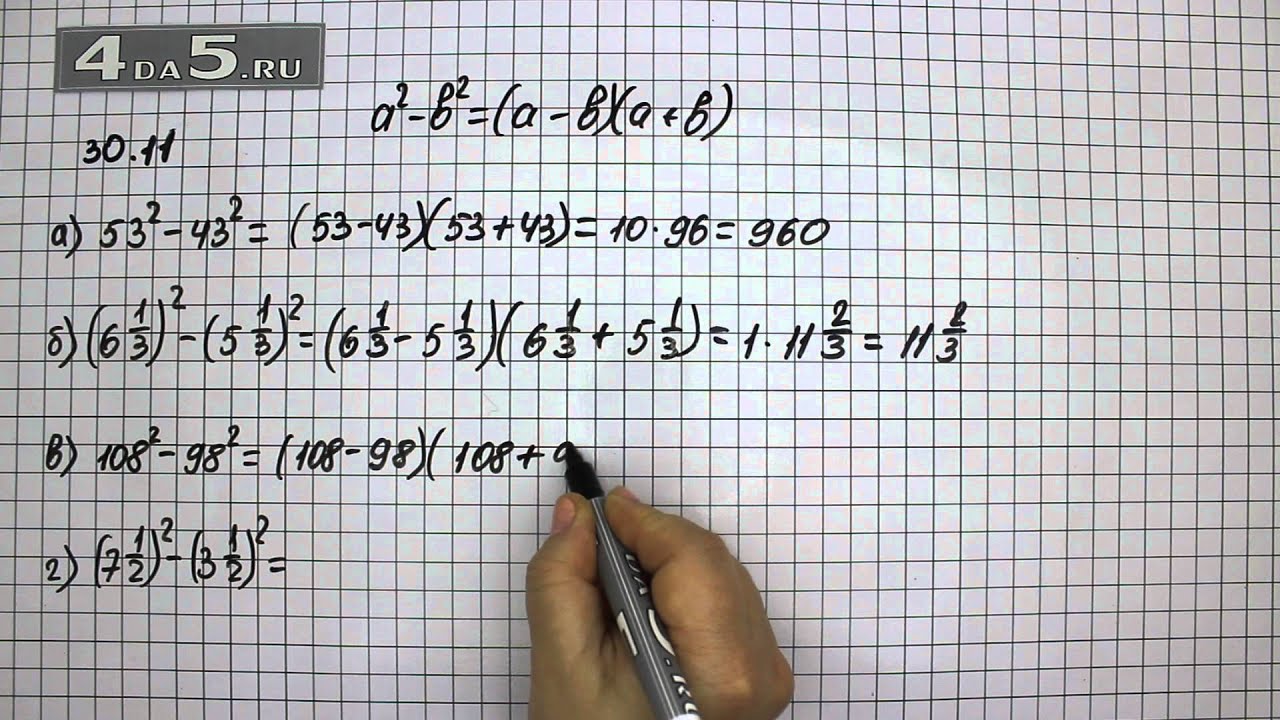 4DA5.RU
a²-b²=(a-b)(a+b)
30.11
а) 53²-43²=(53-43)(53+43)=10·96=960
б) (6 1/3)²-(5 1/3)²=(6 1/3-5 1/3)(6 1/3+5 1/3)=1·11 2/3=11 2/3
в) 108²-98²=(108-98)(108+9
г) (7 1/2)²-(3 1/2)²=